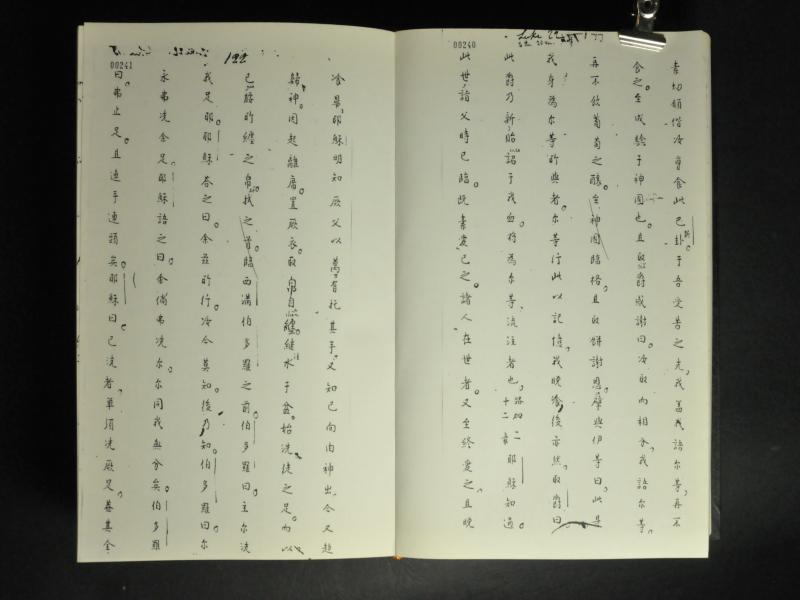 00240
Luke 22
素切願偕冷曾食此巴卦于吾受苦之先我盖我語尔等再不
食之至成驗于神國也且取爵感謝曰冷取而相分我語尔等
再不飲葡萄之釀至神國臨格且取餅謝恩擘與伊等曰此是
我身為尔等所與者尔等行此以記憶我晚飧後亦然取爵曰
此爵乃新詔于我血將為尔等流注者也路四二十二章耶穌知過
此世詣父時已臨既素愛己之諸人在世者又至終愛之且晚
00241
122
飧畢耶穌明知厥父以萬有托其手又知已向由神出今又趨
歸神因起離席置厥衣取帛自纏繼注水于盆始洗徒之足而以
已所纏之帛拭之首臨西滿伯多羅之前伯多羅曰主尔洗
我足耶耶穌荅之曰余茲所行冷今莫知後乃知伯多羅曰尔
永弗洗余足耶穌語之曰余倘弗洗尔尔同我無分矣伯多羅
曰弗止足且連手連頭矣耶穌曰已洗者單須洗厥足葢其全